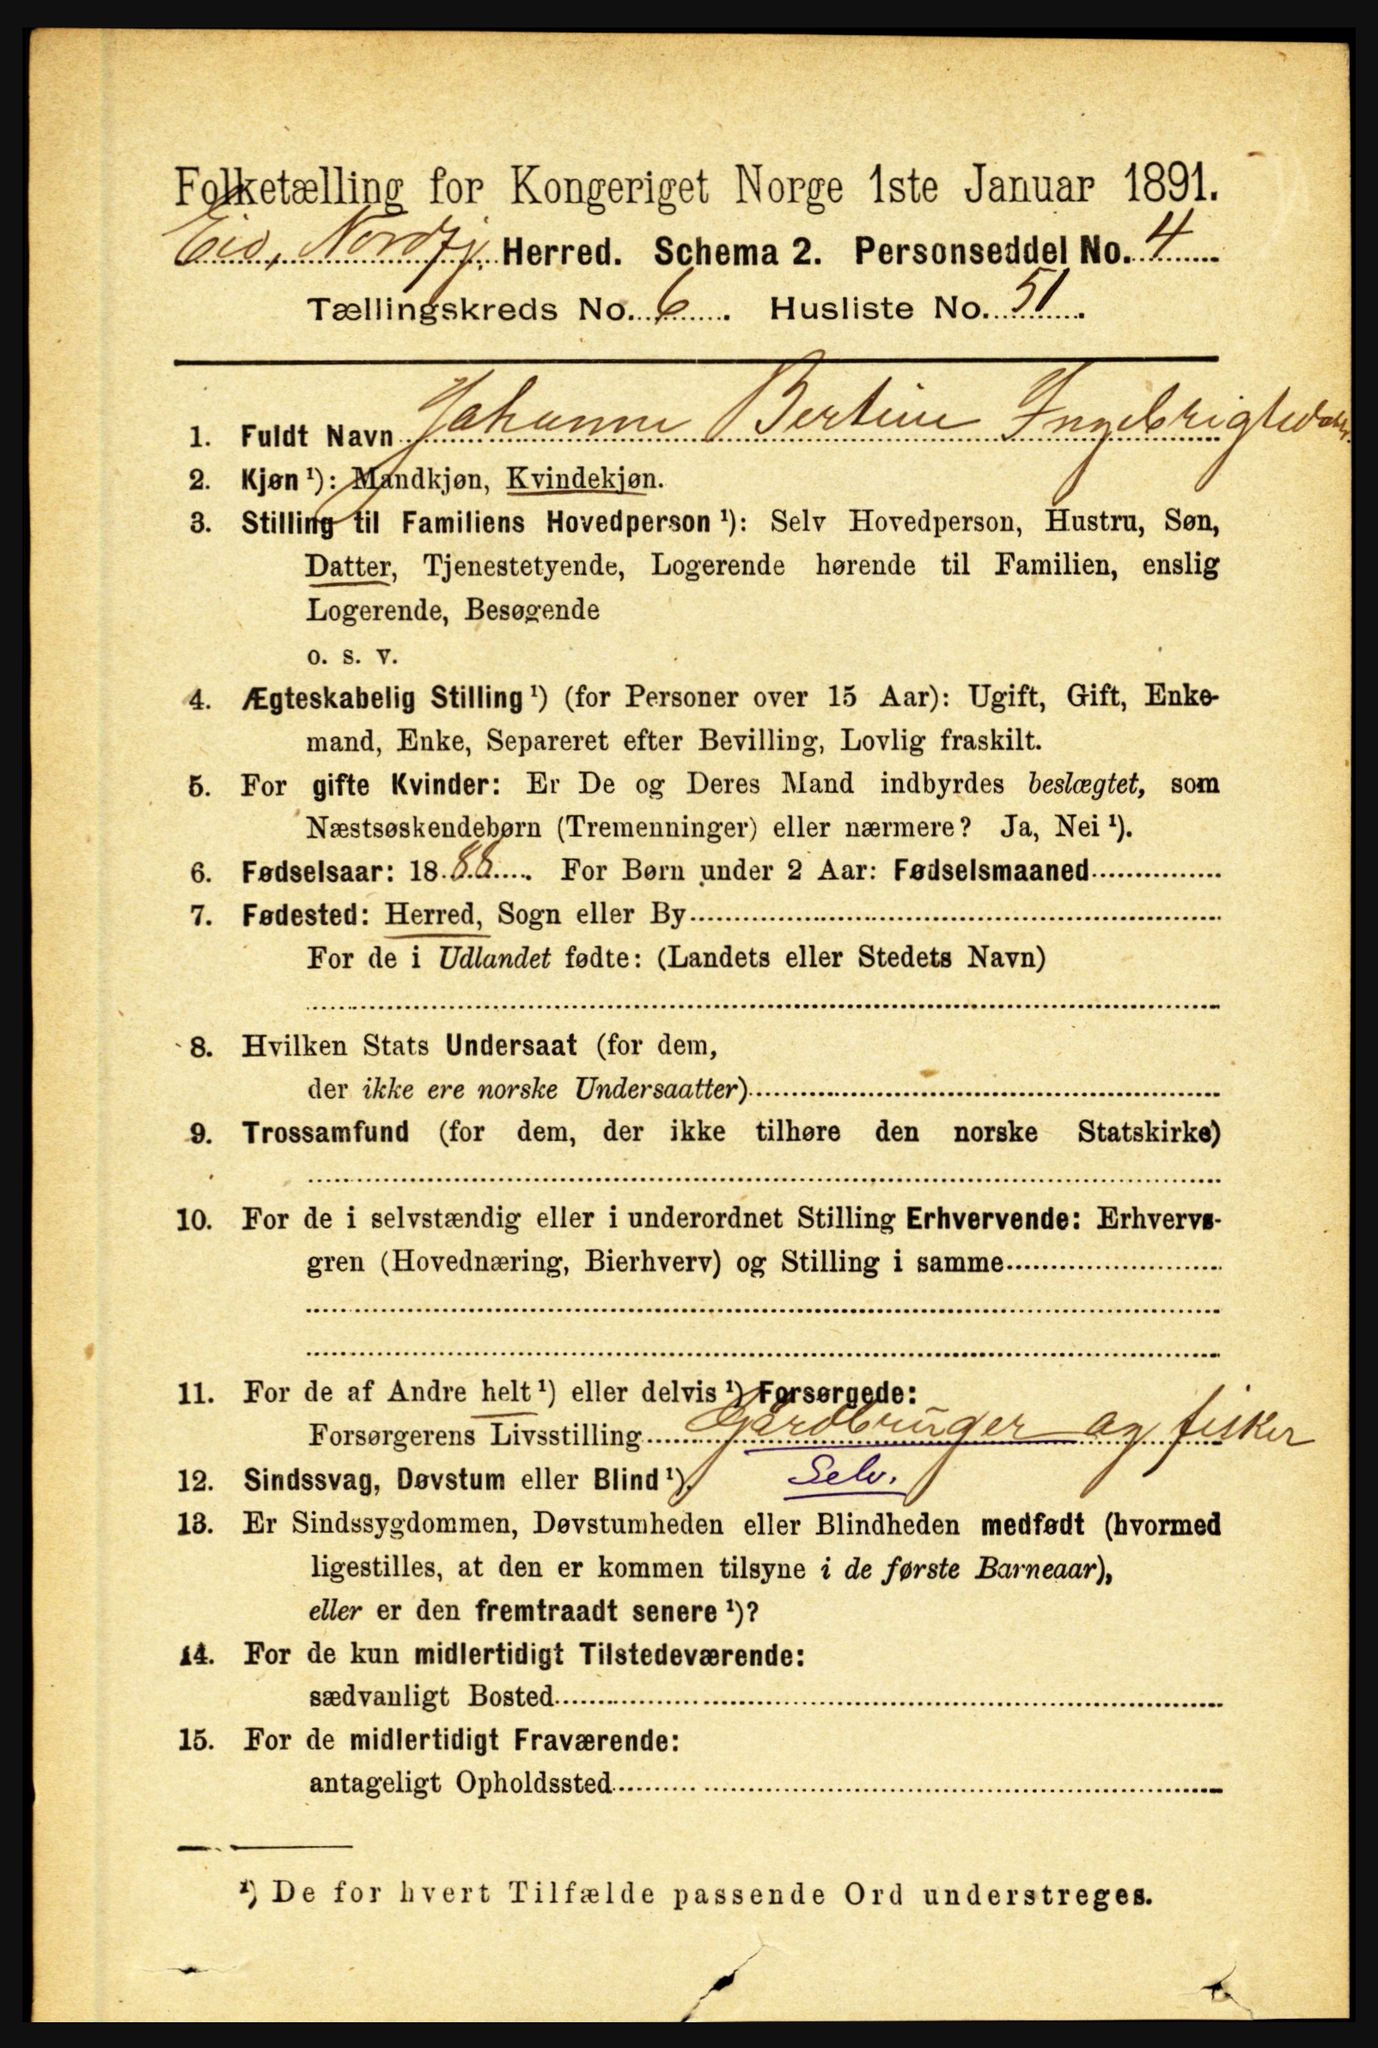 Folketælling for Kongeriget Norge 1ste Januar 1891.
Eid, Nordfj. Herred. Schema 2. Personseddel No. 4
Tællingskreds No. 6. Husliste No. 51.
1. Fuldt Navn Johanne Bertine Ingebrigtsdatr.
2. Kjøn ¹): Mandkjøn, Kvindekjøn.
3. Stilling til Familiens Hovedperson ¹): Selv Hovedperson, Hustru, Søn,
Datter, Tjenestetyende, Logerende hørende til Familien, enslig
Logerende, Besøgende
o. s. v.
4. Ægteskabelig Stilling ¹) (for Personer over 15 Aar): Ugift, Gift, Enke-
mand, Enke, Separeret efter Bevilling, Lovlig fraskilt.
5. For gifte Kvinder: Er De og Deres Mand indbyrdes beslægtet, som
Næstsøskendebørn (Tremenninger) eller nærmere? Ja, Nei ¹).
6. Fødselsaar: 1888. For Børn under 2 Aar: Fødselsmaaned
7. Fødested: Herred, Sogn eller By
For de i Udlandet fødte: (Landets eller Stedets Navn)
8. Hvilken Stats Undersaat (for dem,
der ikke ere norske Undersaatter)
9. Trossamfund (for dem, der ikke tilhøre den norske Statskirke)
10. For de i selvstændig eller i underordnet Stilling Erhvervende: Erhvervs-
gren (Hovednæring, Bierhverv) og Stilling i samme
11. For de af Andre helt ¹) eller delvis ¹) Forsørgede:
Forsørgerens Livsstilling Gardbruger og fisker
12. Sindssvag, Døvstum eller Blind ¹). Selv.
13. Er Sindssygdommen, Døvstumheden eller Blindheden medfødt (hvormed
ligestilles, at den er kommen tilsyne i de første Barneaar),
eller er den fremtraadt senere ¹)?
14. For de kun midlertidigt Tilstedeværende:
sædvanligt Bosted
15. For de midlertidigt Fraværende:
antageligt Opholdssted
¹) De for hvert Tilfælde passende Ord understreges.